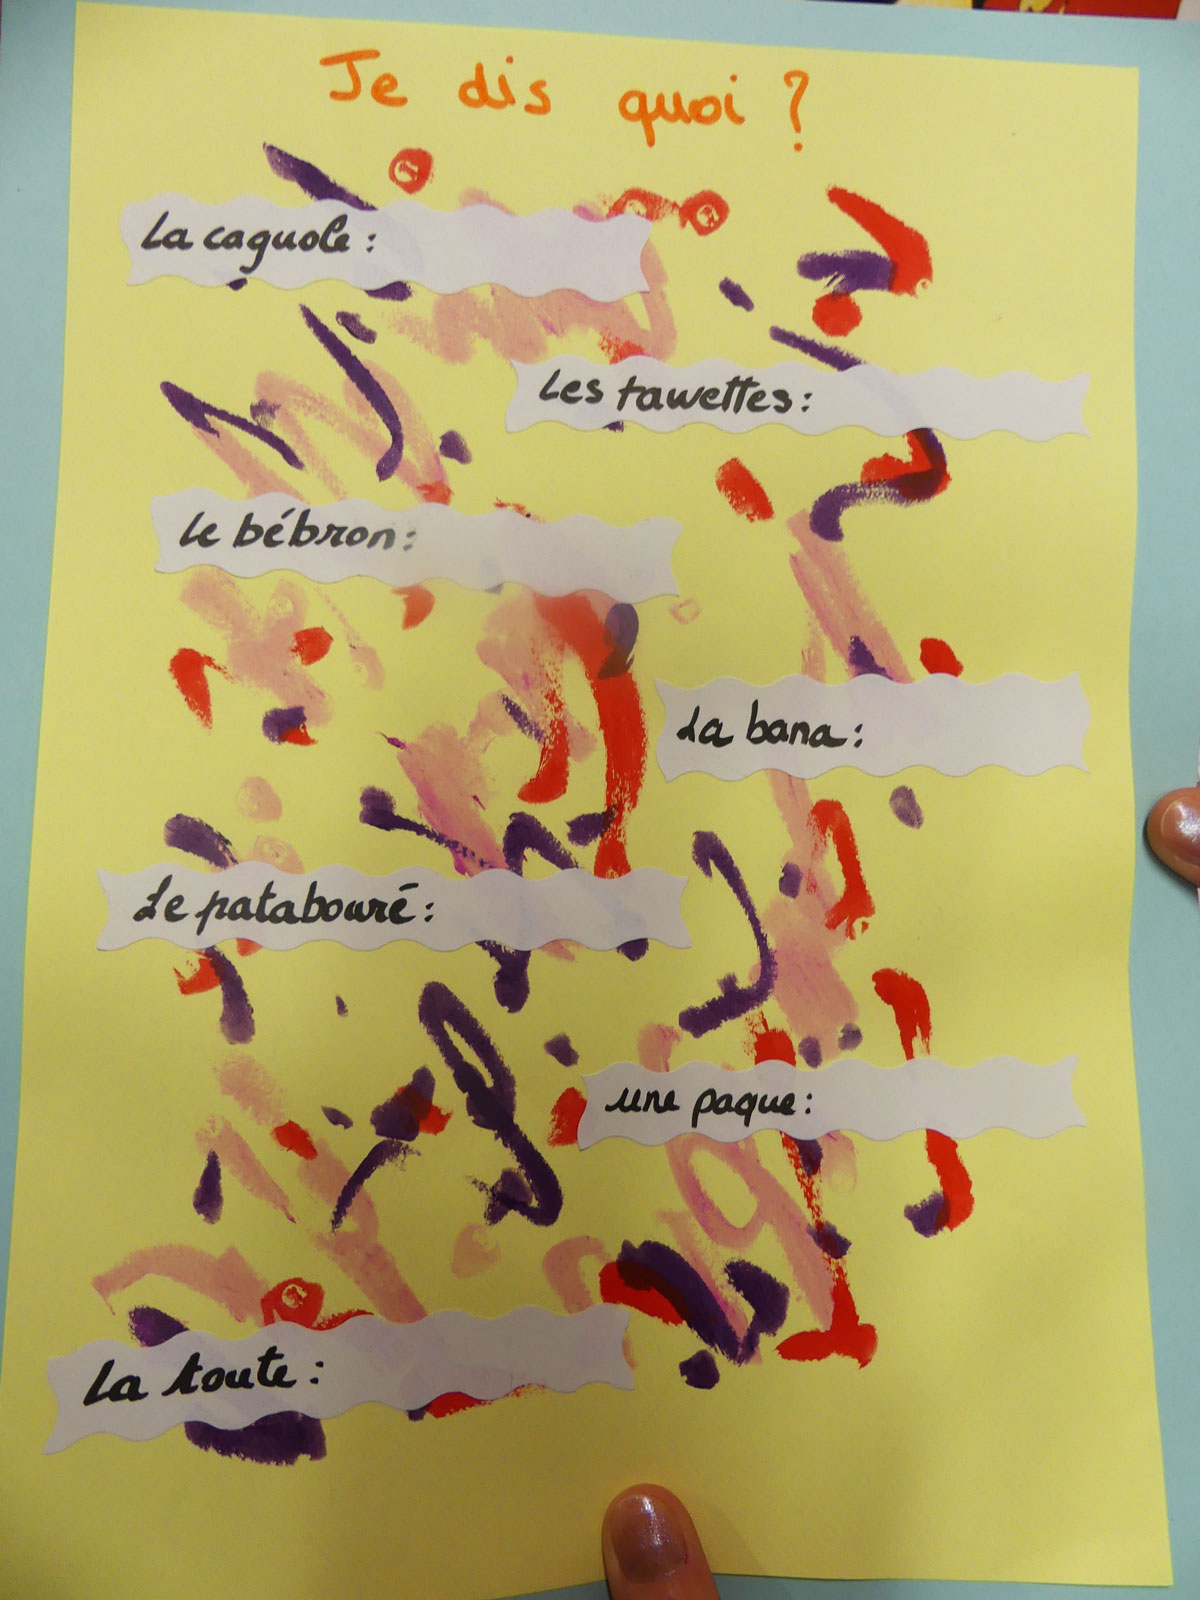 Je dis quoi ?
La caguole :
Les tawettes :
Le bébron :
La bana :
Le patabouré :
une paque :
La toute :